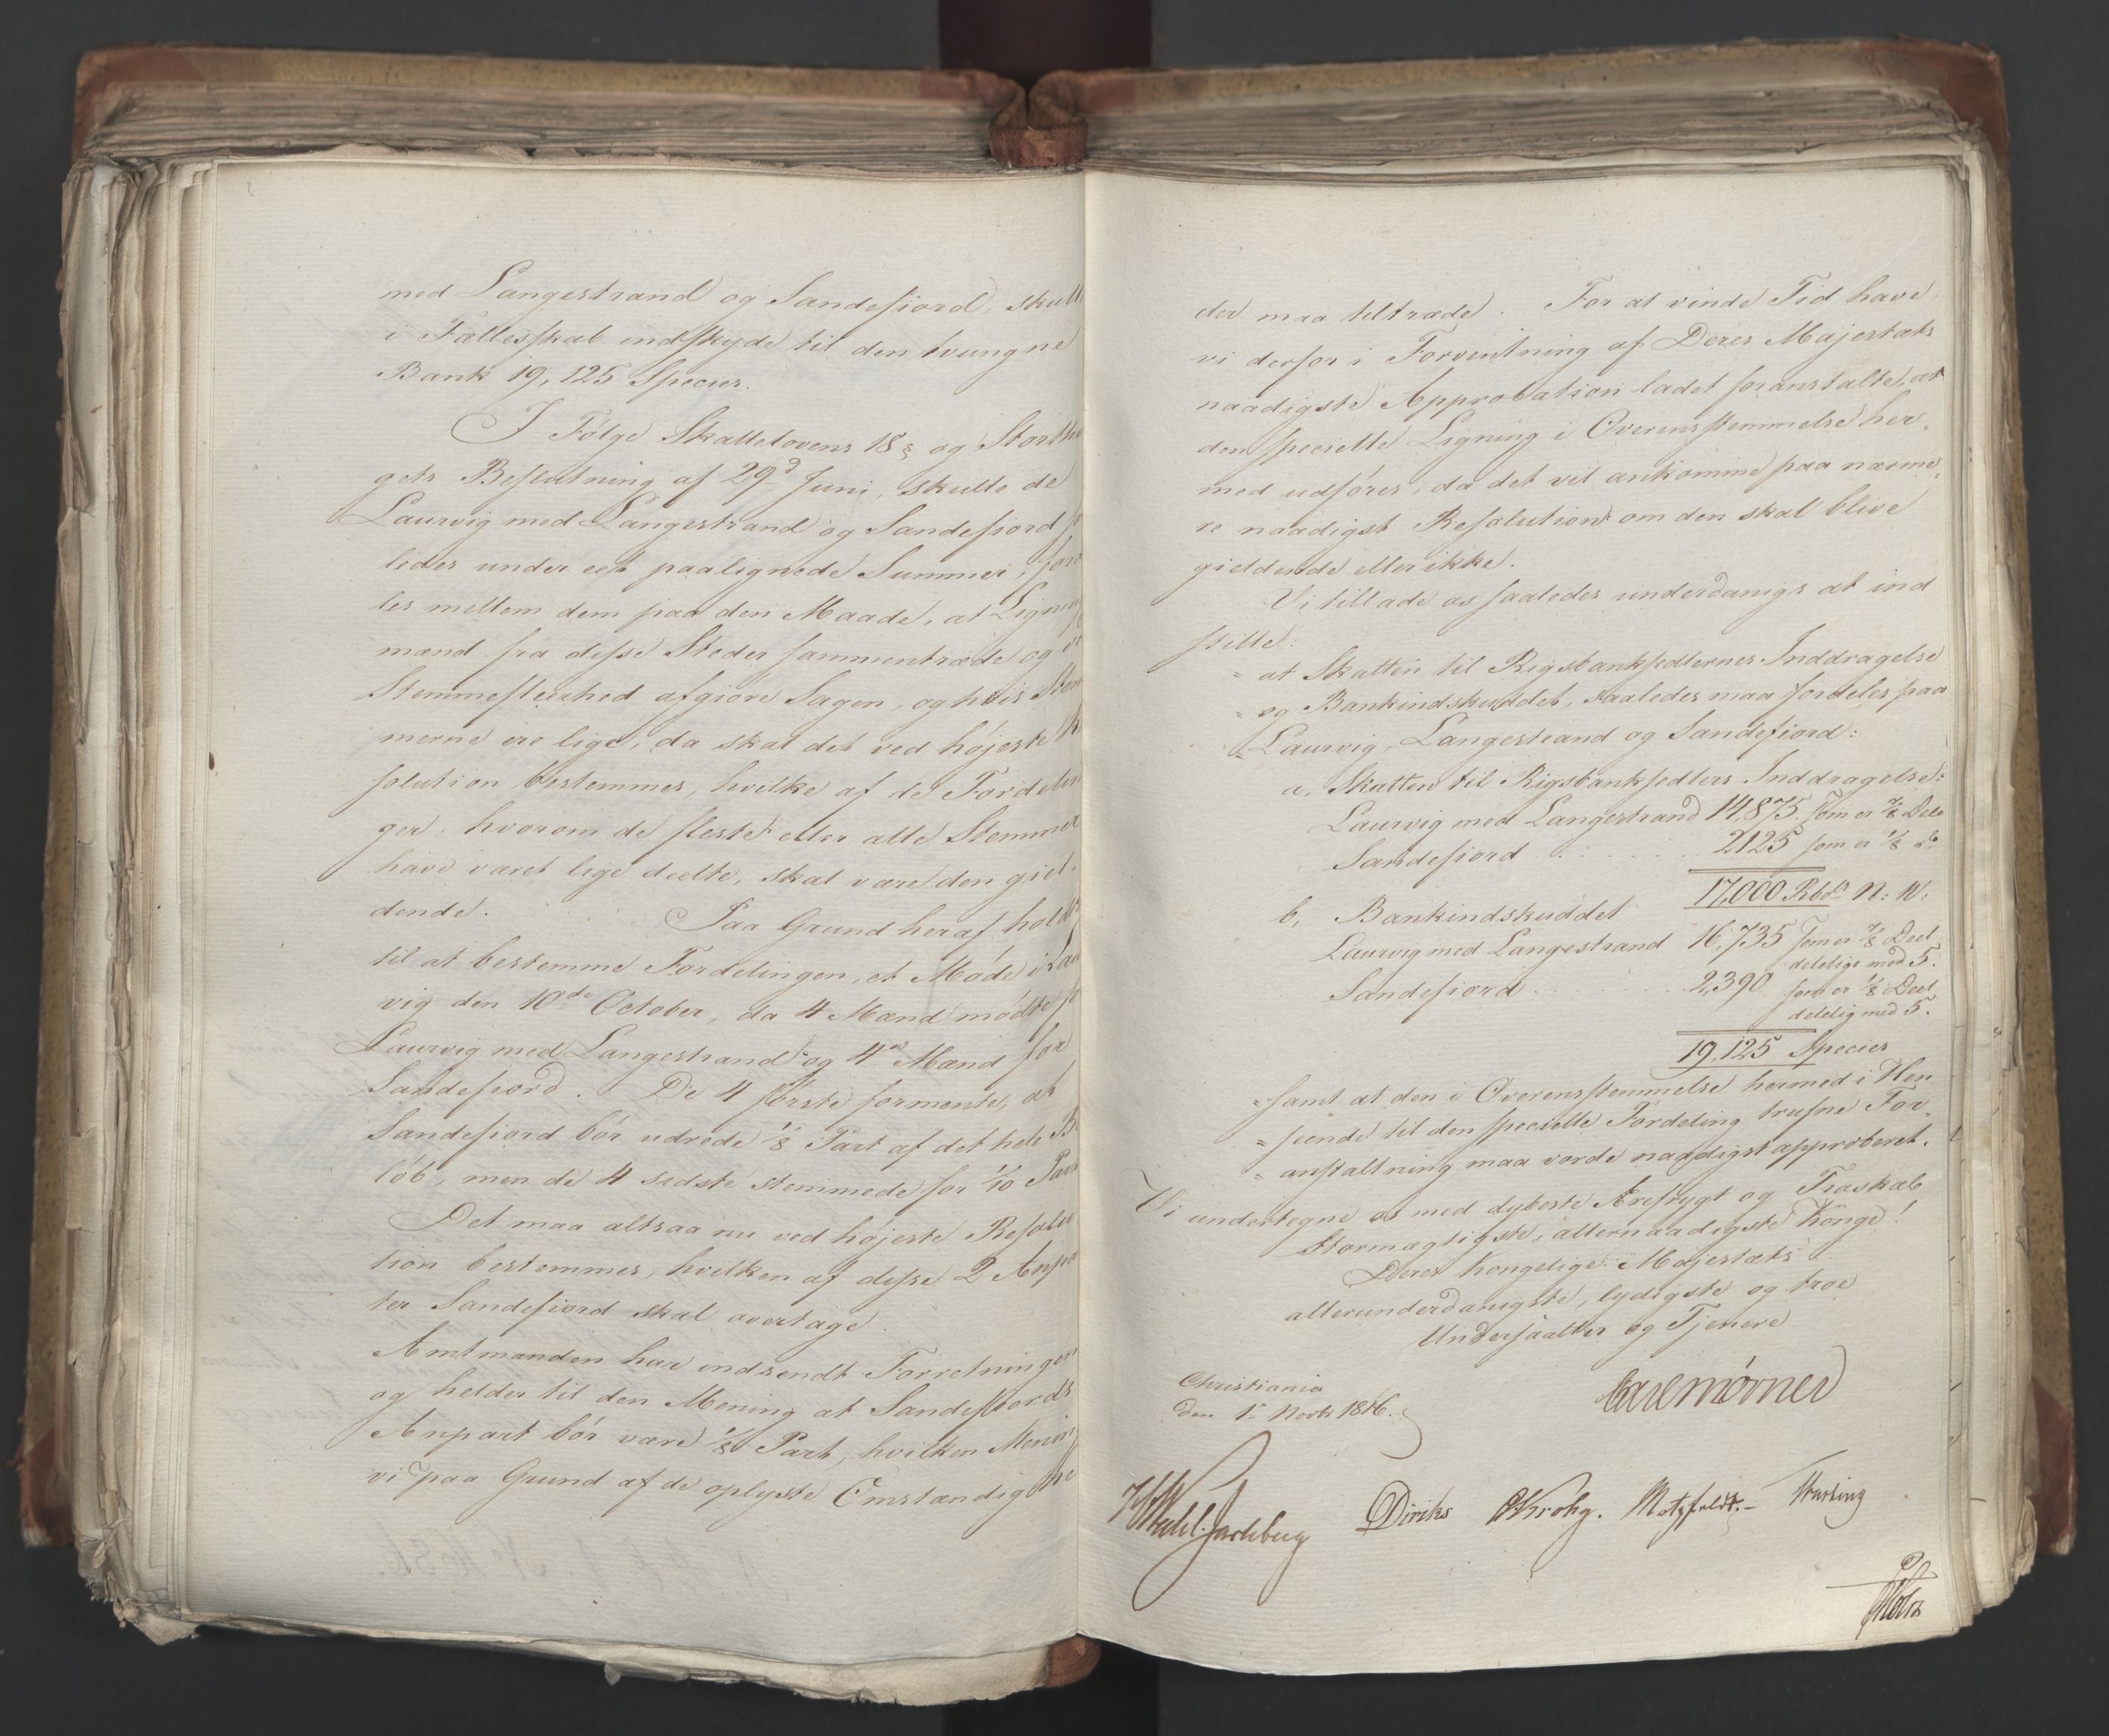 med Langestrand og Sandefiord, skull
i Fællesskab indskyde til den tvungne
Bank 19,125 Species.
I Følge Skattelovens 18 § og Storthi
gets Beslutning af 29d Juni, skulle de
Laurvig med Langestrand og Sandefiord
ledes under eet paalignede Summer, for
les mellem dem paa den Maade, at Lignings
mænd fra disse Steder sammentræde og
Stemmefleerhed afgiøre Sagen, og hvis Stem
merne ere lige, da skal det ved højeste
solution bestemmes, hvilke af de Fordelin
ger, hvorom de fleste eller alle Stemmer
have været lige deelte, skal være den giel-
dende. Paa Grund heraf holdt
til at bestemme Fordelingen, et Møde i Laur
vig den 10de October, da 4 Mænd mødte
Laurvig med Langestrand og 4 Mænd for
Sandefiord. De 4 første formente, at
Sandefiord bør udrede 1/8 Part af det hele Be
løb, men de 4 sidste stemmede for 1/10 Part
Det maa altsaa nu ved højeste Resolu
tion bestemmes, hvilken af disse 2 Anpa
ter Sandefiord skal overtage.
Amtmanden har indsendt Forretningen
og helder til den Mening at Sandefiords
Anpart bør være 1/8 Part, hvilken Mening
vi paa Grund af de oplyste Omstændighe
der maa tiltræde. For at vinde Tid have
vi derfor i Forventning af Deres Majestæts
naadigste Approbation ladet foranstalte, at
den specielle Ligning i Overensstemmelse her-
med udføres, da det vil ankomme paa nærme-
re naadigst Resolution om den skal blive
gieldende eller ikke.
Vi tillade os saaledes underdanigst at ind
stille:
"at Skatten til Rigsbanksedlernes Inddragelse
"og Bankindskuddet, saaledes maa fordeles paa
"Laurvig, Langestrand og Sandefiord:
a, Skatten til Rigsbanksedlers Inddragelse:
Laurvig med Langestrand 14,875. som er 7/8 Dele
Sandefiord . . . . . 2125 som er 1/8 do
17,000 Rbdlr N: W:
b, Bankindskuddet
Laurvig med Langestrand 16,735 som er 7/8 Deel
delelige med 5.
Sandefiord . . . . . 2,390 som er 1/8 Deel
delelig med 5.
19,125 Species
"samt at den i Overensstemmelse hermed i Hen
"seende til den specielle Fordeling trufne For-
"anstaltning maa vorde naadigst approberet.
Vi undertegne os med dybeste Ærefrygt og Troskab
Stormægtigste, allernaadigste Konge!
Deres Kongelige Majestæts
allerunderdanigste, lydigste og troe
Undersaatter og Tjenere
Christiania
den 1ste Novbr 1816.
Carl Mörner
HWedel Jarlsberg Diriks CKrohg. Motzfeldt.-
Holst